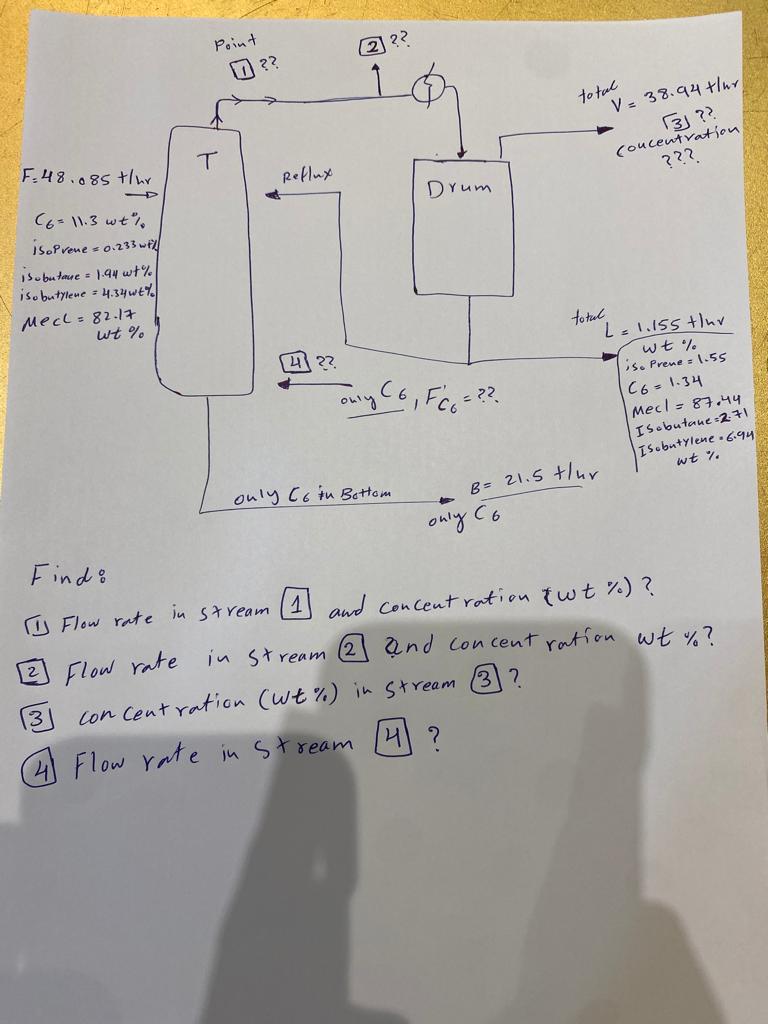 Point
1 ??
2 ??
total
V = 38.94 t/hr
3 ??
concentration
???
T
F=48.085 t/hr
C6 = 11.3 wt%
isoPrene = 0.233 wt%
isobutane = 1.94 wt%
isobutylene = 4.34 wt%
Mecl = 82.17
wt %
Reflux
Drum
total
L = 1.155 t/hr
wt %
isoPrene = 1.55
C6 = 1.34
Mecl = 87.44
Isobutane = 2.71
Isobutylene = 6.94
wt %
4 ??
only C6, F'C6 = ??
only C6 in Bottom
B = 21.5 t/hr
only C6
Find:
1 Flow rate in stream 1 and concentration (wt %) ?
2 Flow rate in stream 2 and concentration wt %?
3 concentration (wt%) in stream 3 ?
4 Flow rate in stream 4 ?